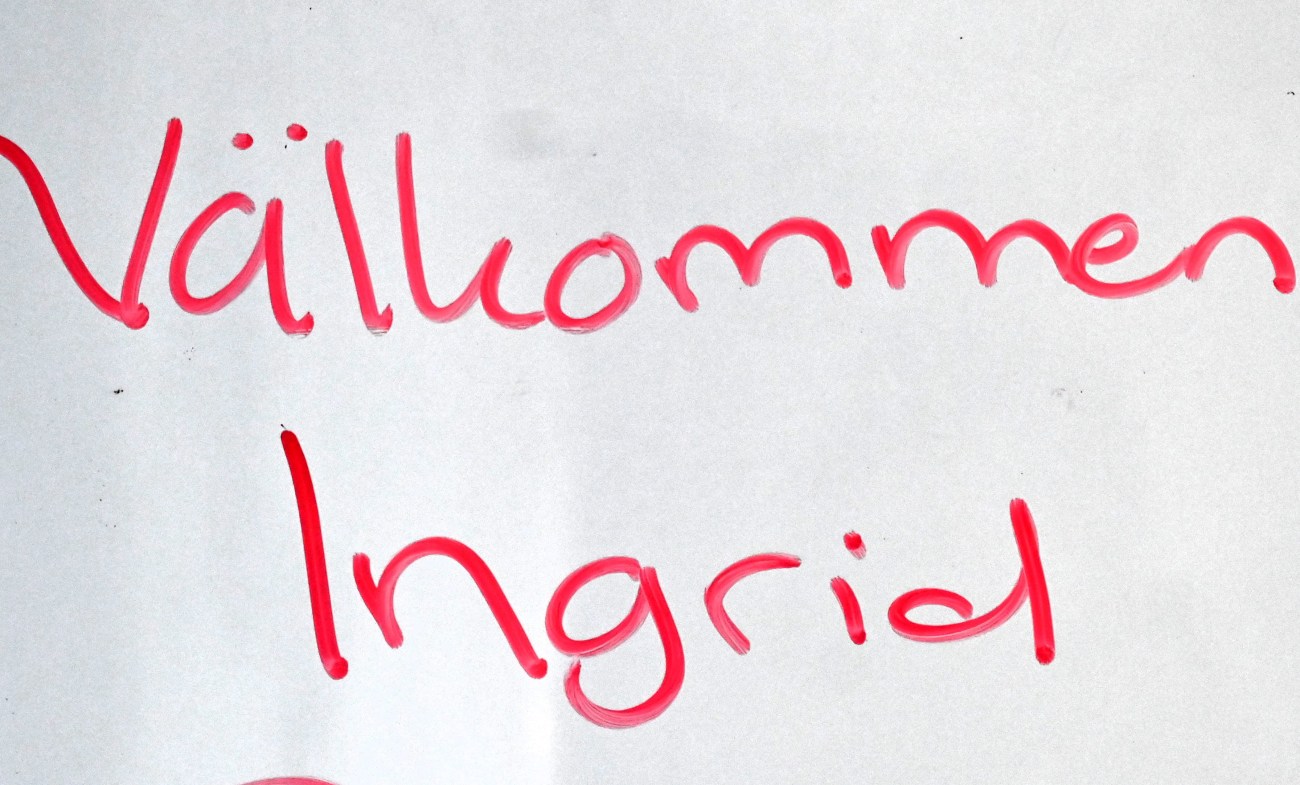 Välkommen
Ingrid